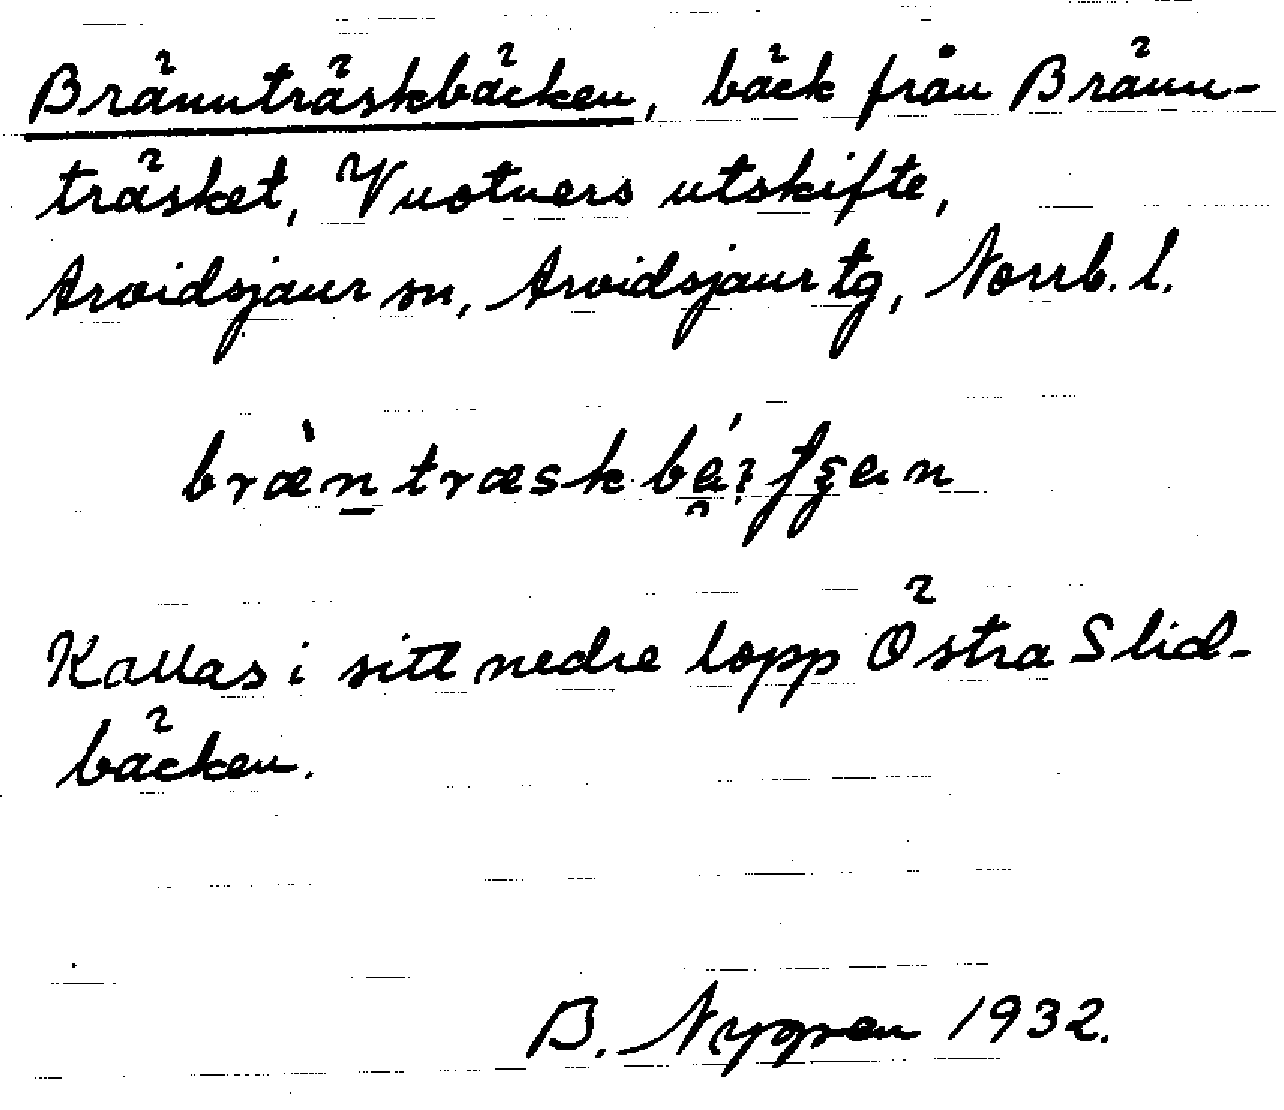 Brännträskbäcken, bäck från Bränn-
träsket, Vuotners utskifte,
Arvidsjaur sn, Arvidsjaur tg, Norrb. l.
Kallas i sitt nedre lopp Östra Slid-
bäcken.
B. Nygren 1932.